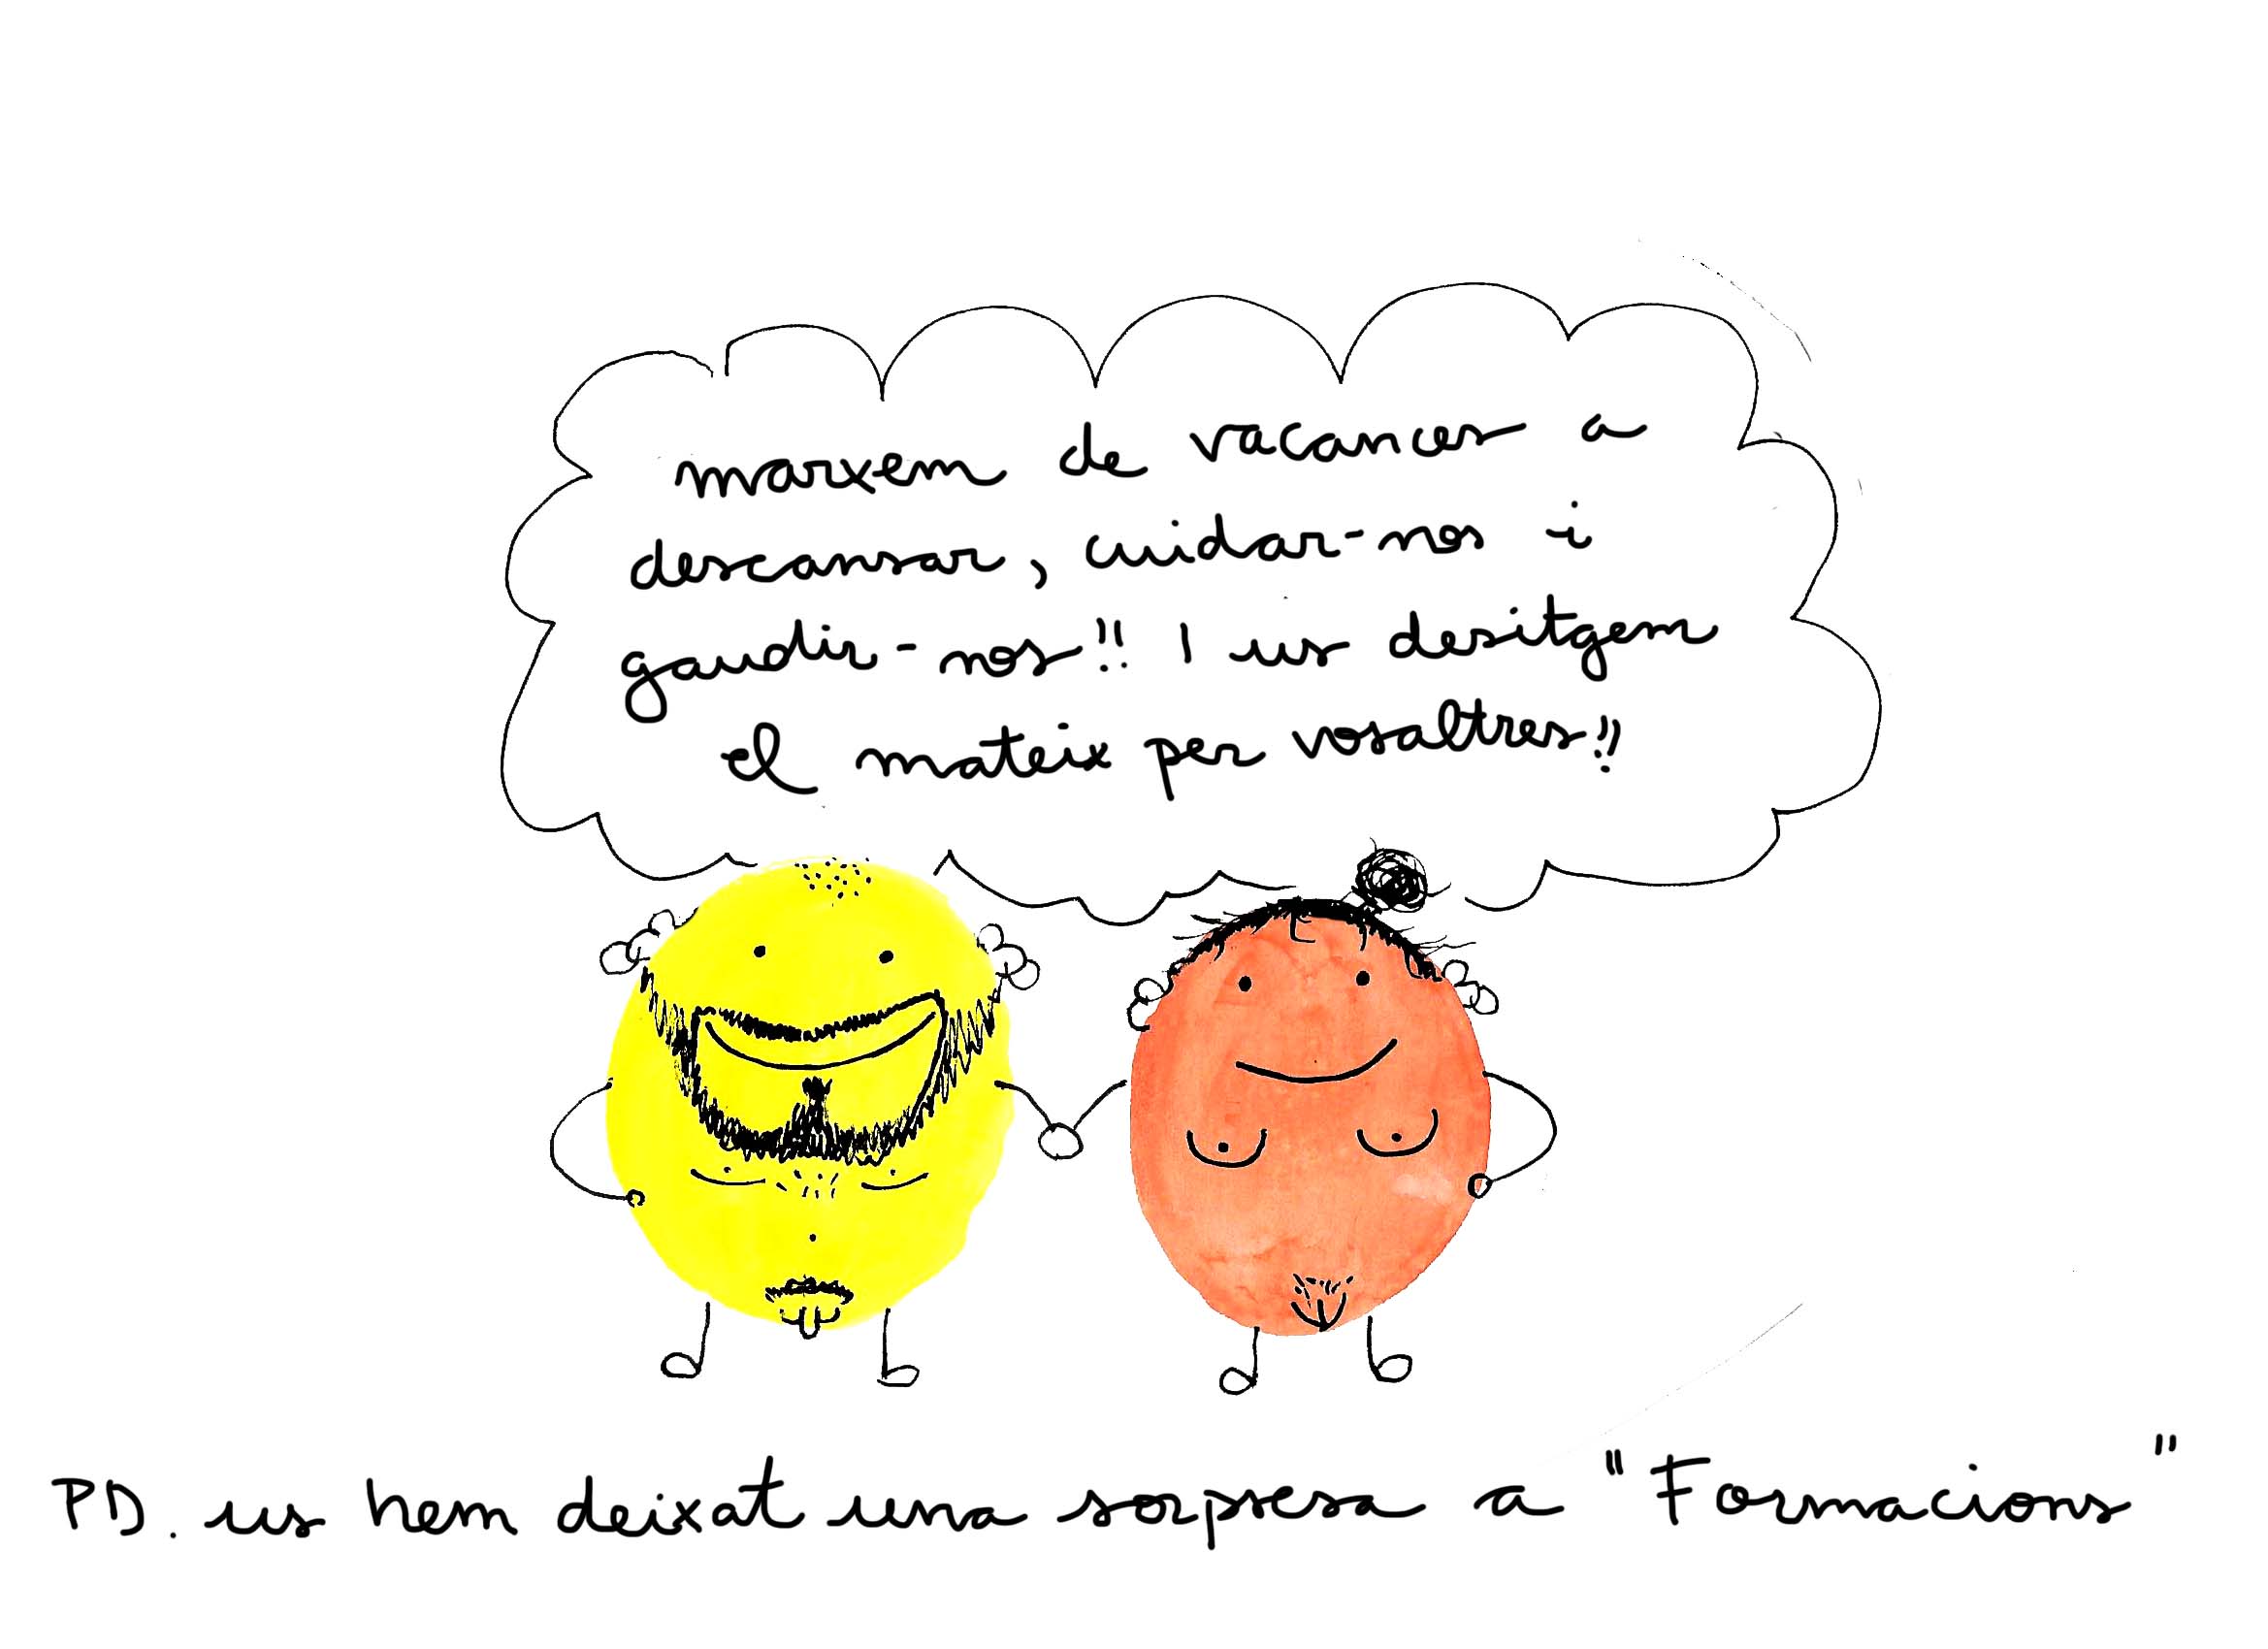 marxem de vacances a
descansar, cuidar-nos i
gaudir-nos!! I us desitgem
el mateix per vosaltres!!
PD. us hem deixat una sorpresa a "Formacions"